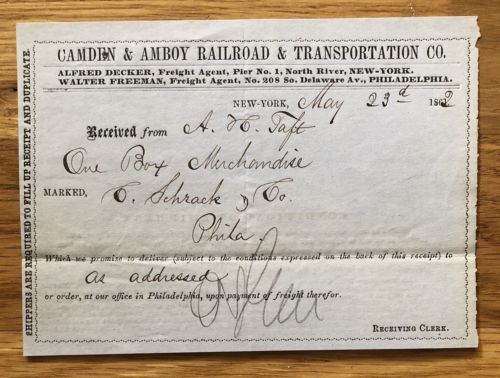 CAMDEN & AMBOY RAILROAD & TRANSPORTATION CO.
ALFRED DECKER, Freight Agent, Pier No. 1, North River, NEW-YORK.
WALTER FREEMAN, Freight Agent, No. 208 So. Delaware Av., PHILADELPHIA.
NEW-YORK, May 23d 1862
Received from A. H. Taft
One Box Merchandise
MARKED, C. Schrack & Co.
Phila.
Which we promise to deliver (subject to the conditions expressed on the back of this receipt) to
as addressed
or order, at our office in Philadelphia, upon payment of freight therefor.
RECEIVING CLERK.
SHIPPERS ARE REQUIRED TO FILL UP RECEIPT AND DUPLICATE.